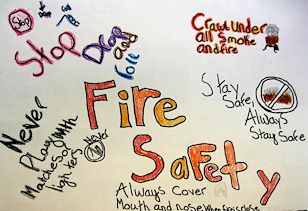 Stop
Stop
Drop
and
roll
Crawl Under
all Smoke
and fire
Fire
Safety
Stay
Safe!
Always
Stay Safe
Never
Play with
Matches or
lighters
Never
Always Cover
Mouth and nose When